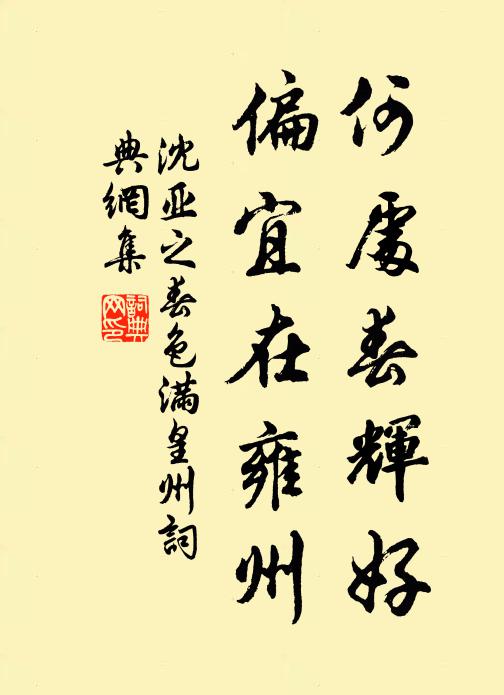 何處春輝好
偏宜在雍州
沈亚之春色滿皇州詞
典網集
詞典
网印